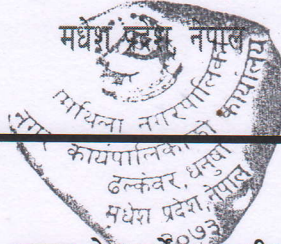 मधेश प्रदेश, नेपाल
मिथिला नगरपालिका
नगर कार्यपालिकाको कार्यालय
ढल्केवर, धनुषा
मधेश प्रदेश, नेपाल
२०७३